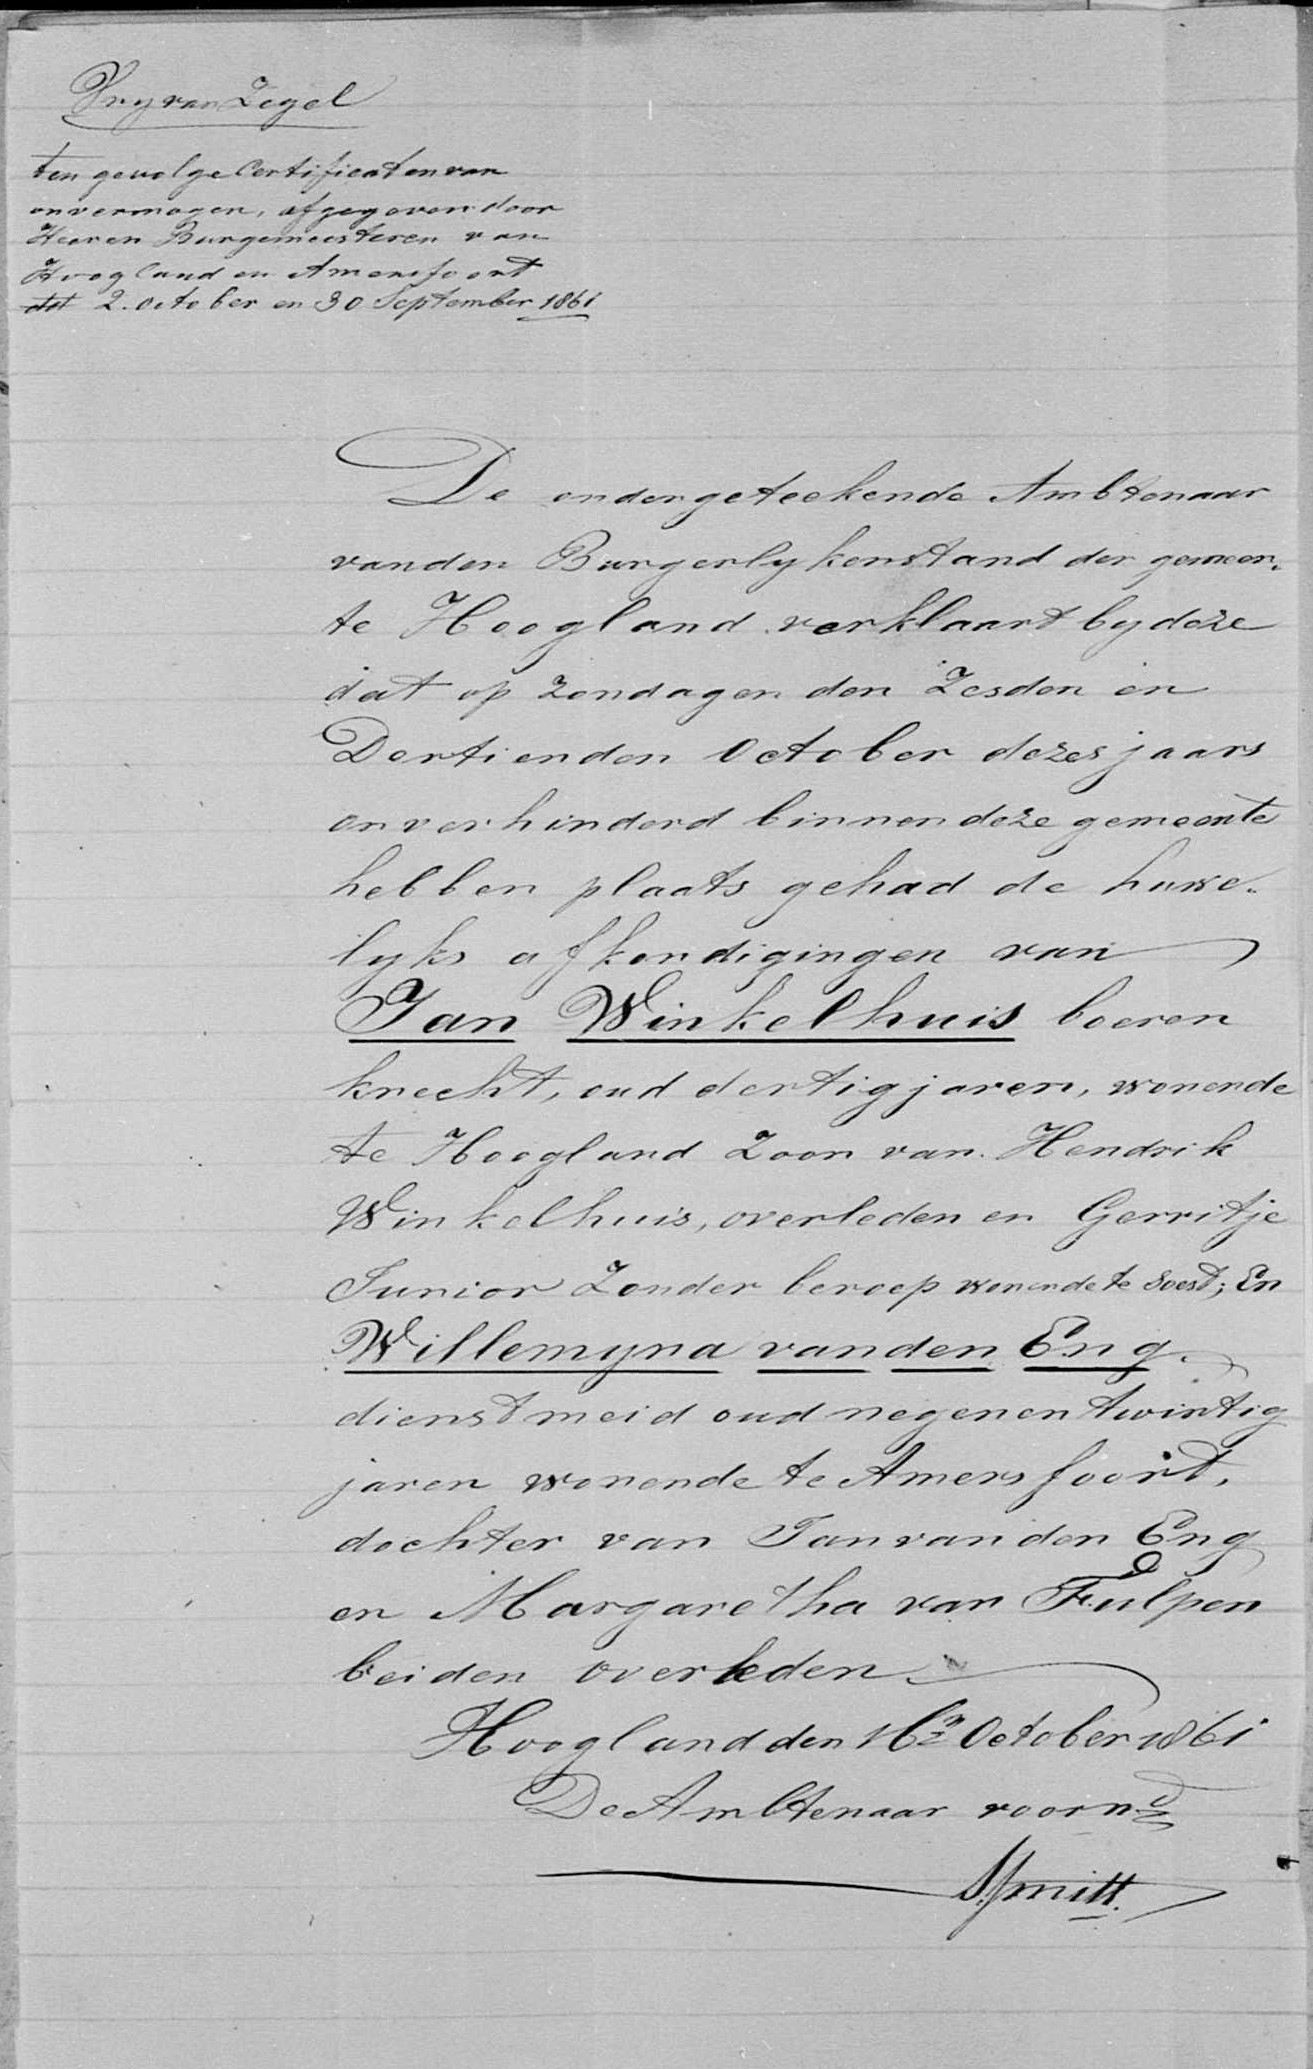 Vry van Zegel
ten gevolge Certificaten van
onvermogen, afgegeven door
Heeren Burgemeesteren van
Hoogland en Amersfoort
dd 2. October en 30 September 1861
De ondergeteekende Ambtenaar
van den Burgerlyken stand der gemeen„
te Hoogland verklaart by deze
dat op zondagen den Zesden en
Dertienden October dezes jaars
onverhinderd binnen deze gemeente
hebben plaats gehad de huwe„
lyks afkondigingen van
Jan Winkelhuis boeren
knecht, oud dertig jaren, wonende
te Hoogland Zoon van Hendrik
Winkelhuis, overleden en Gerritje
Junior Zonder beroep wonende te Soest; En
Willemyna van den Eng.
dienstmeid oud negenentwintig
jaren wonende te Amersfoort,
dochter van Jan van den Eng
en Margaretha van Fulpen
beiden overleden
Hoogland den 16n October 1861
De Ambtenaar voornd
S. Smitt.